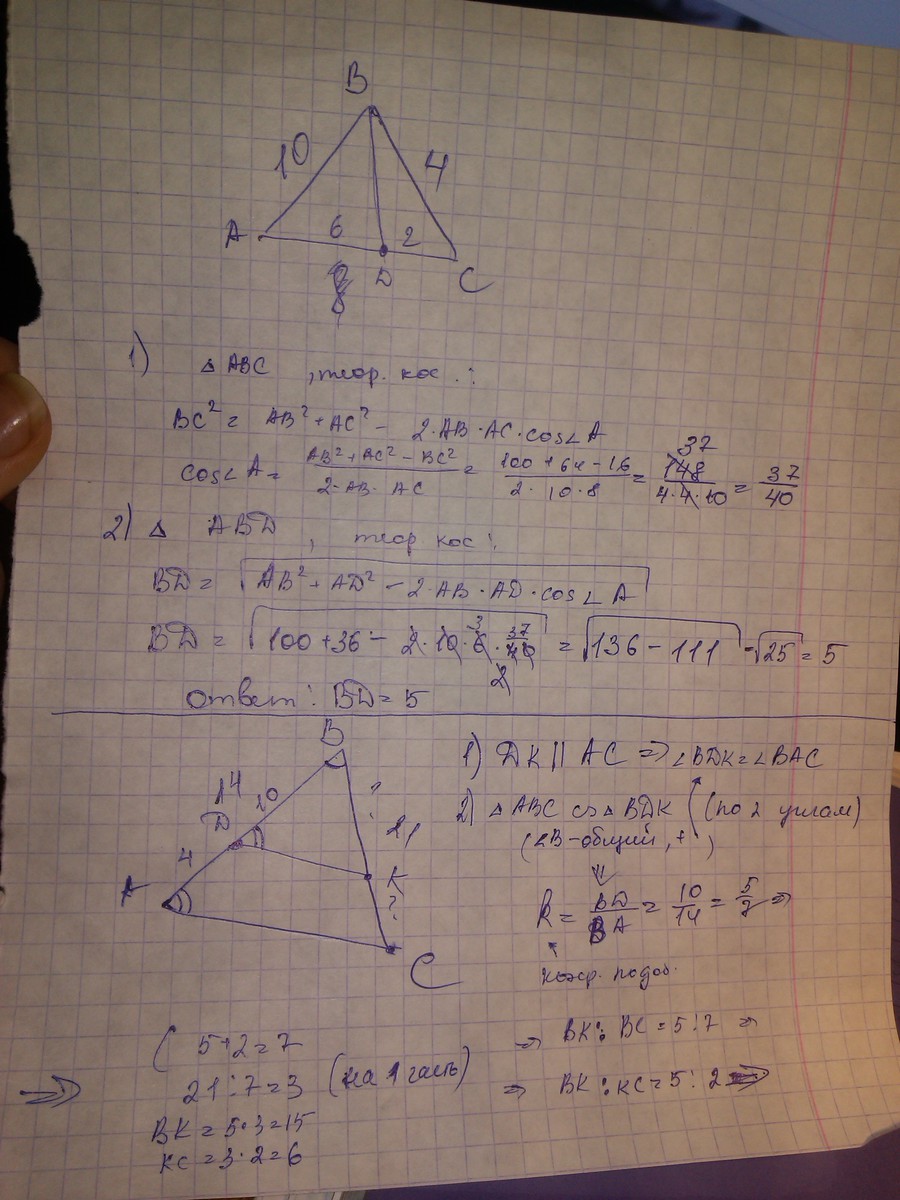 B
10
4
A
6
2
D
C
8
1) △ ABC , теор. кос.:
BC² = AB² + AC² - 2·AB·AC·cos∠A
cos∠A = (AB² + AC² - BC²)/(2·AB·AC) = (100 + 64 - 16)/(2·10·8) = 37 148/(4·4·10) = 37/40
2) △ ABD , теор кос:
BD = √(AB² + AD² - 2·AB·AD·cos∠A)
BD = √(100 + 36 - 2·10·6·37/40) = √(136 - 111) = √25 = 5
3
2
Ответ: BD = 5
B
14
10
?
D
21
4
K
A
?
C
1) DK || AC => ∠BDK = ∠BAC
2) △ ABC ∽ △ BDK (по 2 углам)
(∠B-общий, + )
k = BD/BA = 10/14 = 5/7 =>
коэф. подоб.
=> BK : BC = 5 : 7 =>
=> BK : KC = 5 : 2 =>
=> ( 5+2=7
21:7=3 (на 1 часть)
BK = 5·3=15
KC = 3·2=6